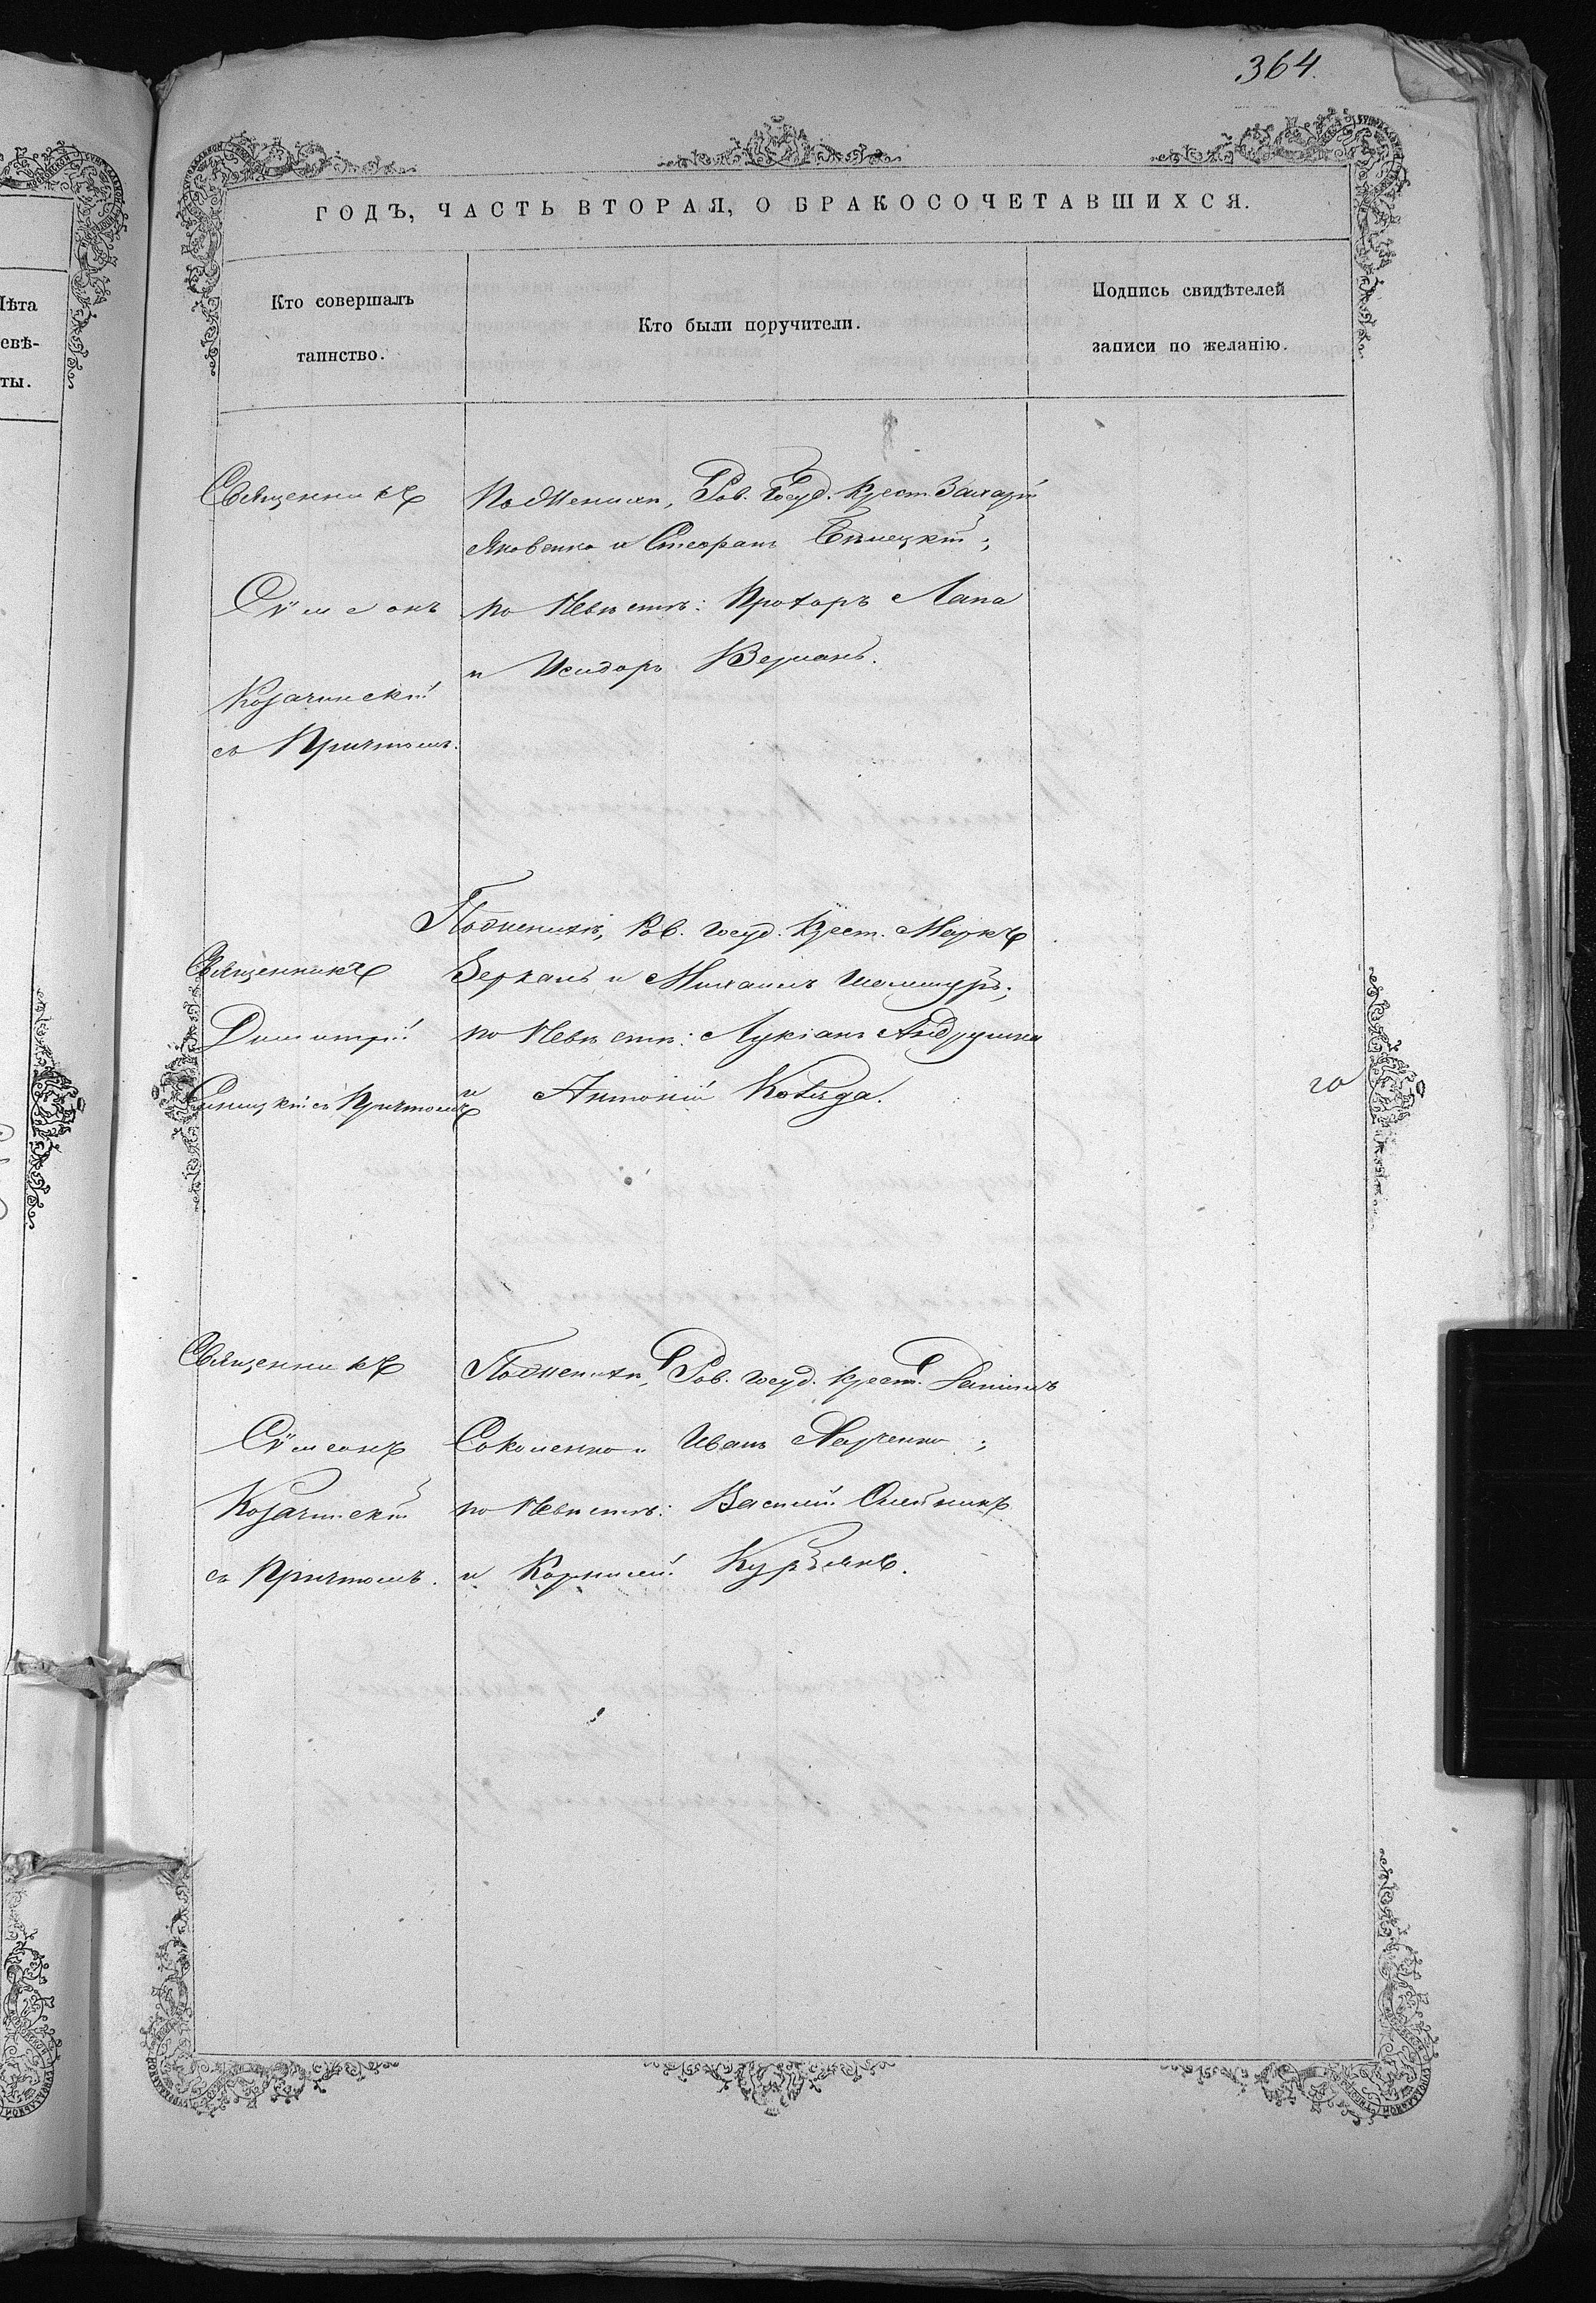 364.
ГОДЪ, ЧАСТЬ ВТОРАЯ, О БРАКОСОЧЕТАВШИХСЯ.
Кто совершалъ
таинство.
Кто были поручители.
Подпись свидѣтелей
записи по желанію.
Лѣта
евѣ-
ты.
Священникъ
Сѵмеонъ
Козачинскій
съ Причтомъ.
По Женихѣ, Гов. Госуд. Крест. Захарій
Яковенко и Стефанъ Бѣлецкій;
по Невѣстѣ: Прохоръ Лапа
и Исидоръ
Священникъ
Димитрій
Синицкій съ Причтомъ
По Женихѣ, Гов. Госуд. Крест. Маркъ
и Михаилъ
по Невѣстѣ: Лукіанъ Андрушка
и Антоній
го
Священникъ
Сѵмеонъ
Козачинскій
съ Причтомъ.
По Женихѣ, Гов. Госуд. Крест. Даніилъ
Соколенко и Иванъ Марченко;
по Невѣстѣ: Василій Олейникъ
и Корнилій Курьянъ.